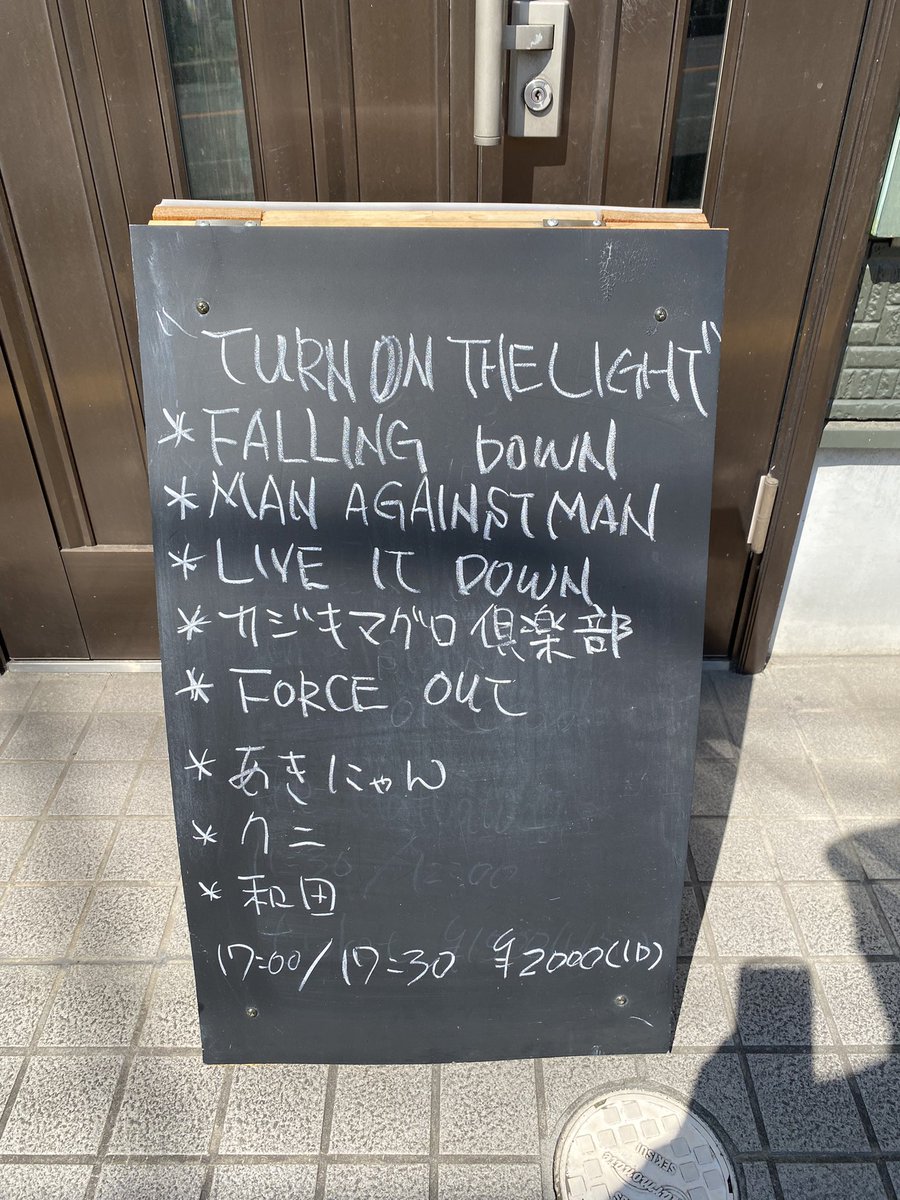 "TURN ON THE LIGHT"
* FALLING DOWN
* MAN AGAINST MAN
* LIVE IT DOWN
* カジキマグロ倶楽部
* FORCE OUT
* あきにゃん
* クニ
* 和田
17:00/17:30 ¥2000(1D)